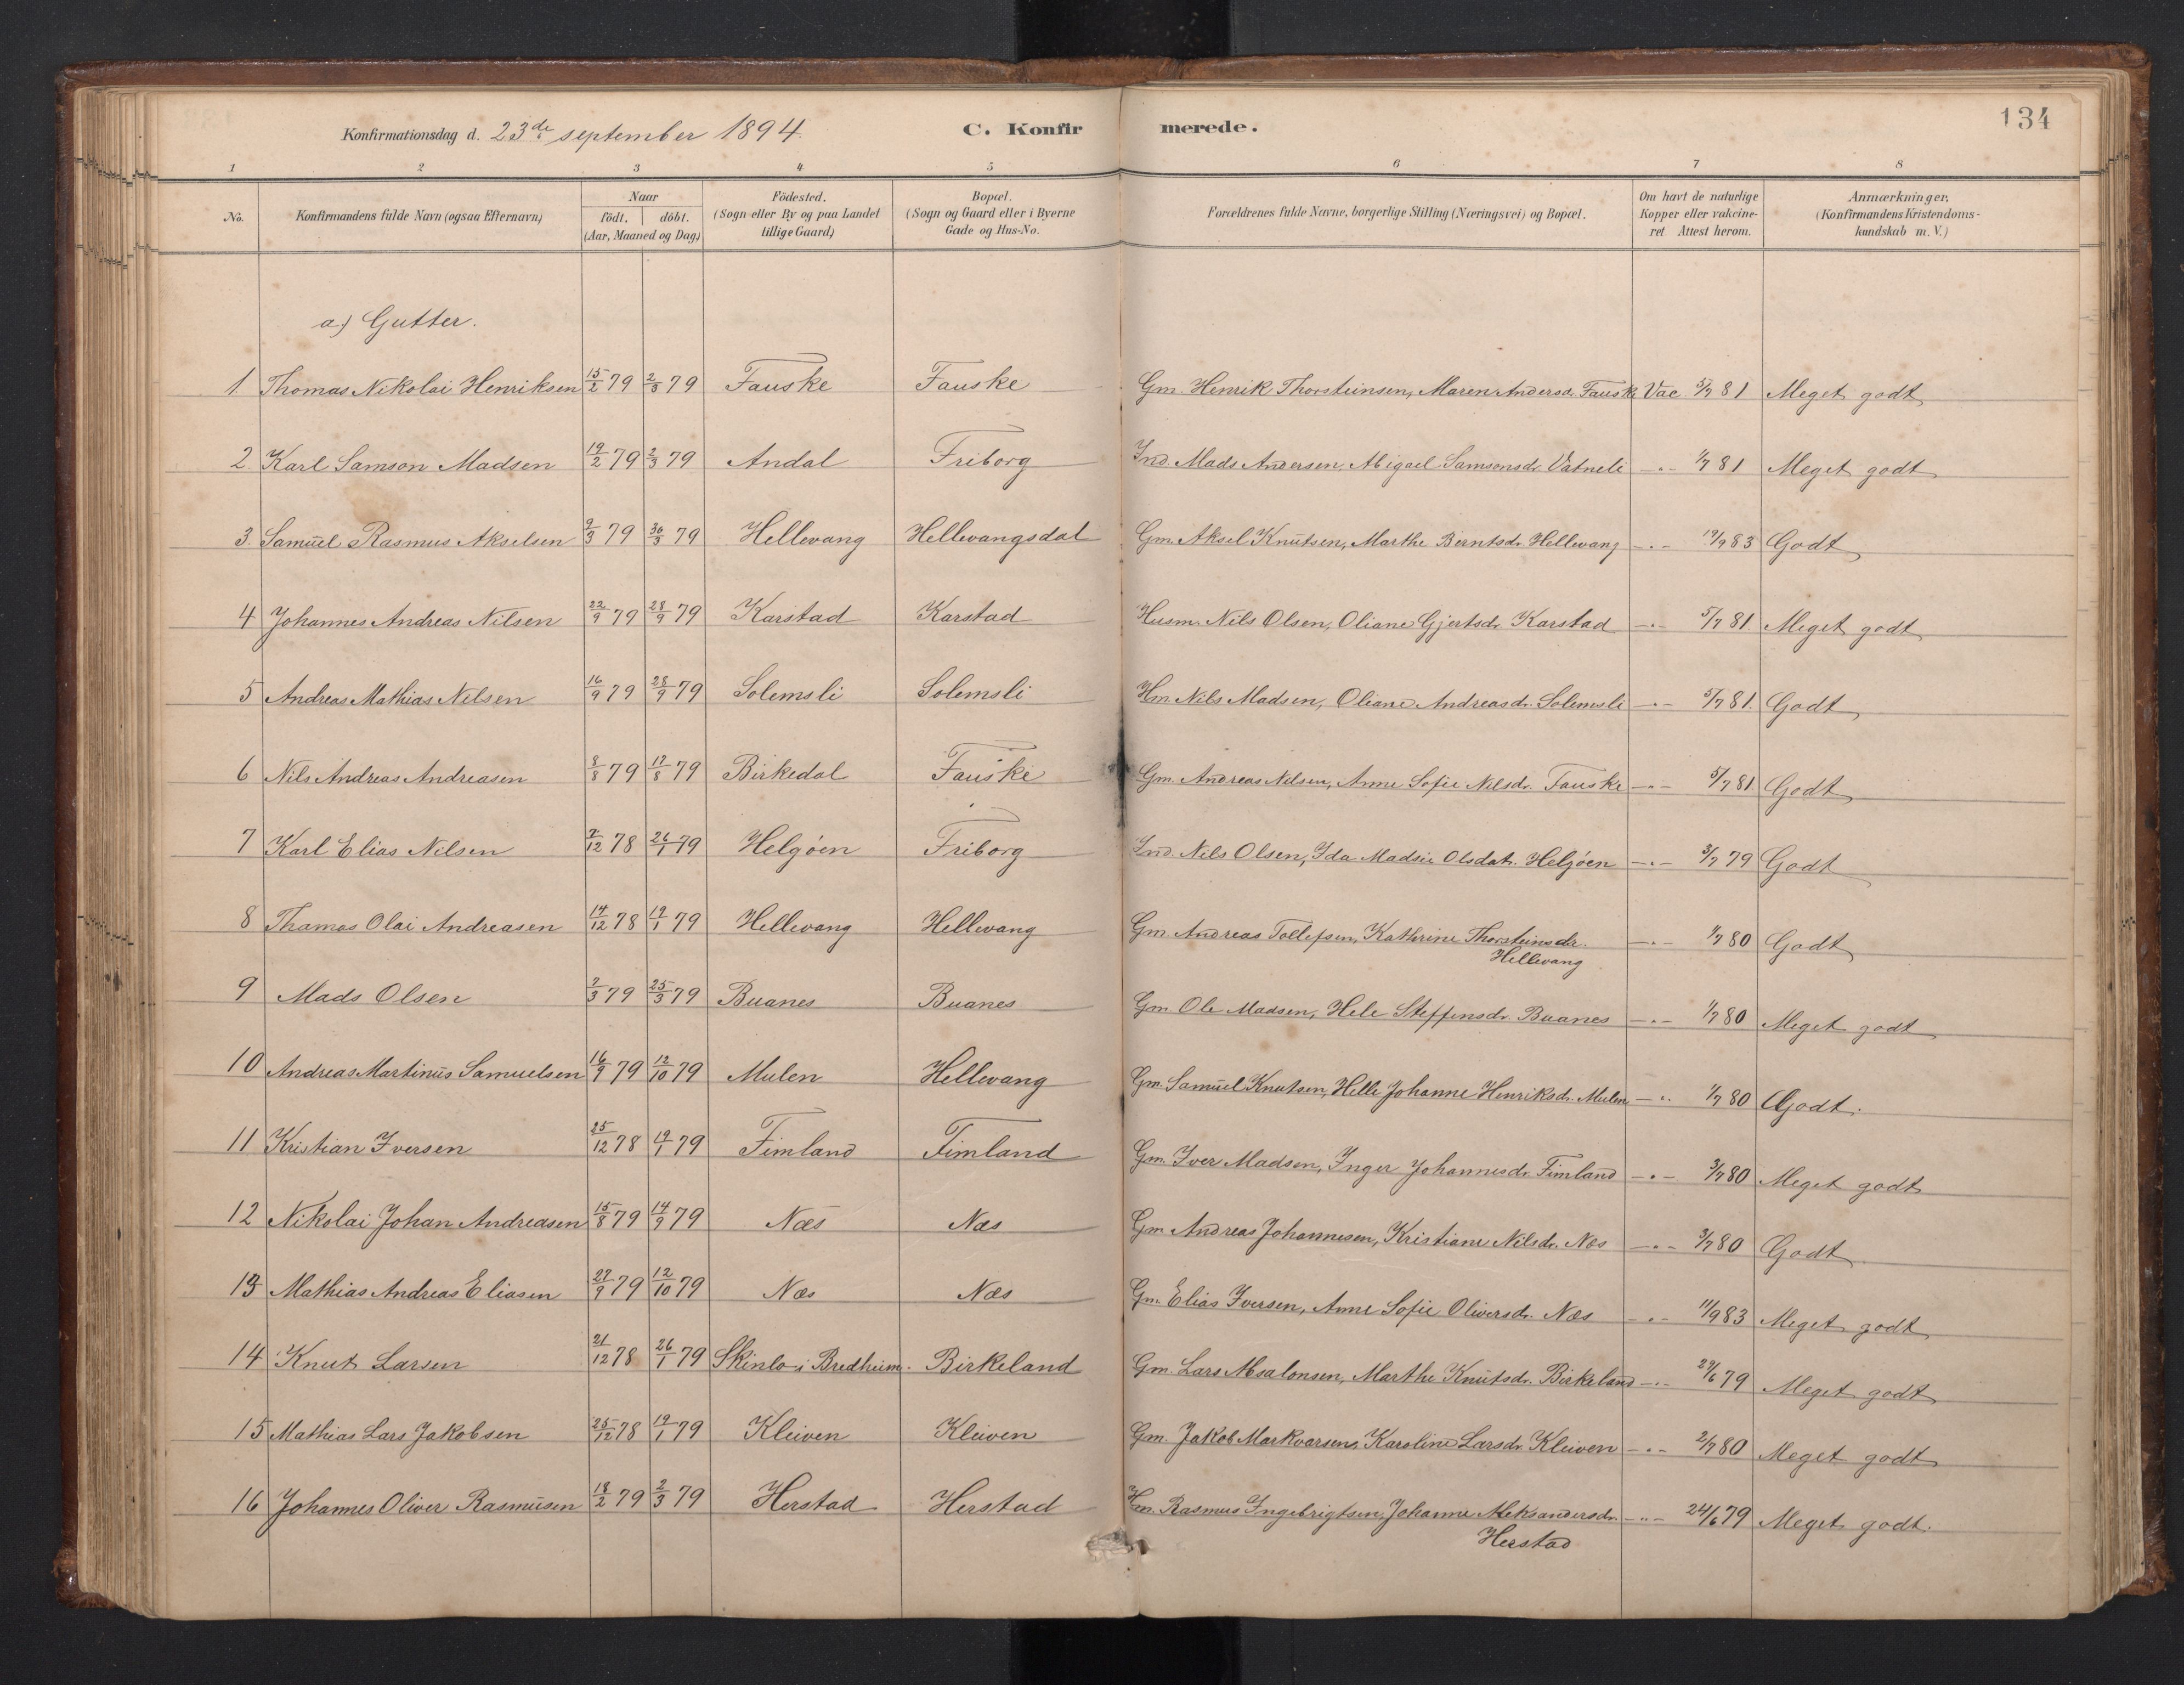 134
Konfirmationsdag d. 23de september 1894. C. Konfirmerede.
1 2 3 4 5 6 7 8
No. Konfirmandens fulde Navn (ogsaa Efternavn) Naar födt. döbt. (Aar, Maaned og Dag) Födested. (Sogn eller By og paa Landet tillige Gaard) Bopæl. (Sogn og Gaard eller i Byerne Gade og Hus-No. Forældrenes fulde Navne, borgerlige Stilling (Næringsvei) og Bopæl. Om havt de naturlige Kopper eller vakcineret Attest herom. Anmærkninger, (Konfirmandens Kristendomskundskab m.V.)
a) Gutter.
1 Thomas Nikolai Henriksen 15/2 79 2/3 79 Fauske Fauske Gm. Henrik Thorsteinsen, Maren Andersdr. Fauske Vac 5/7 81 Meget godt
2 Karl Samson Madsen 19/2 79 2/3 79 Andal Friborg Ind. Mads Andersen, Abigael Samsonsdr. Vatneli -"- 1/7 81 Meget godt
3. Samuel Rasmus Akselsen 9/3 79 30/3 79 Hellevang Hellevangsdal Gm. Aksel Knutsen, Marthe Berntsdr. Hellevang -"- 19/9 83 Godt
4 Johannes Andreas Nilsen 22/9 79 28/9 79 Karstad Karstad Husm. Nils Olsen, Oliane Gjertsdr. Karstad -"- 5/7 81 Meget godt
5 Andreas Mathias Nilsen 16/9 79 28/9 79 Solemsli Solemsli Hm. Nils Madsen, Oliane Andreasdr. Solemsli -"- 5/7 81. Godt
6 Nils Andreas Andreasen 8/8 79 17/8 79 Birkedal Fauske Gm. Andreas Nilsen, Anne Sofie Nilsdr. Fauske -"- 5/7 81. Godt
7 Karl Elias Nilsen 7/12 78 26/1 79 Helgöen Friborg Ind. Nils Olsen, Ida Madsie Olsdatr. Helgöen -"- 3/7 79 Godt
8 Thomas Olai Andreasen 14/12 78 19/1 79 Hellevang Hellevang Gm. Andreas Tollefsen, Kathrine Thorsteinsdr. -"- 1/7 80 Godt
Hellevang
9 Mads Olsen 7/3 79 25/3 79 Buanes Buanes Gm. Ole Madsen, Hele Steffensdr. Buanes -"- 1/7 80 Meget godt
10 Andreas Martinus Samuelsen 16/9 79 12/10 79 Mulen Hellevang Gm. Samuel Knutsen, Helle Johanne Henriksdr. Mulen -"- 1/7 80 Godt.
11 Kristian Iversen 25/12 78 19/1 79 Fimland Fimland Gm. Iver Madsen, Inger Johannesdr. Fimland -"- 3/7 80 Meget godt
12 Nikolai Johan Andreasen 15/8 79 14/9 79 Næs Næs Gm. Andreas Johannesen, Kristiane Nilsdr. Næs -"- 3/7 80 Godt
13 Mathias Andreas Eliasen 27/9 79 12/10 79 Næs Næs Gm. Elias Iversen, Anne Sofie Oliversdr. Næs -"- 11/9 83 Meget godt
14 Knut Larsen 21/12 78 26/1 79 Skinlo i Bredheim. Birkeland Gm. Lars Absalonsen, Marthe Knutsdr. Birkeland -"- 24/6 79 Meget godt
15 Mathias Lars Jakobsen 25/12 78 19/1 79 Kleiven Kleiven Gm. Jakob Markvarsen, Karoline Larsdr. Kleiven -"- 2/7 80 Meget godt
16 Johannes Oliver Rasmusen 18/2 79 2/3 79 Herstad Herstad Hm. Rasmus Ingebrigtsen, Johanne Aleksandersdr. -"- 24/6 79 Meget godt.
Herstad